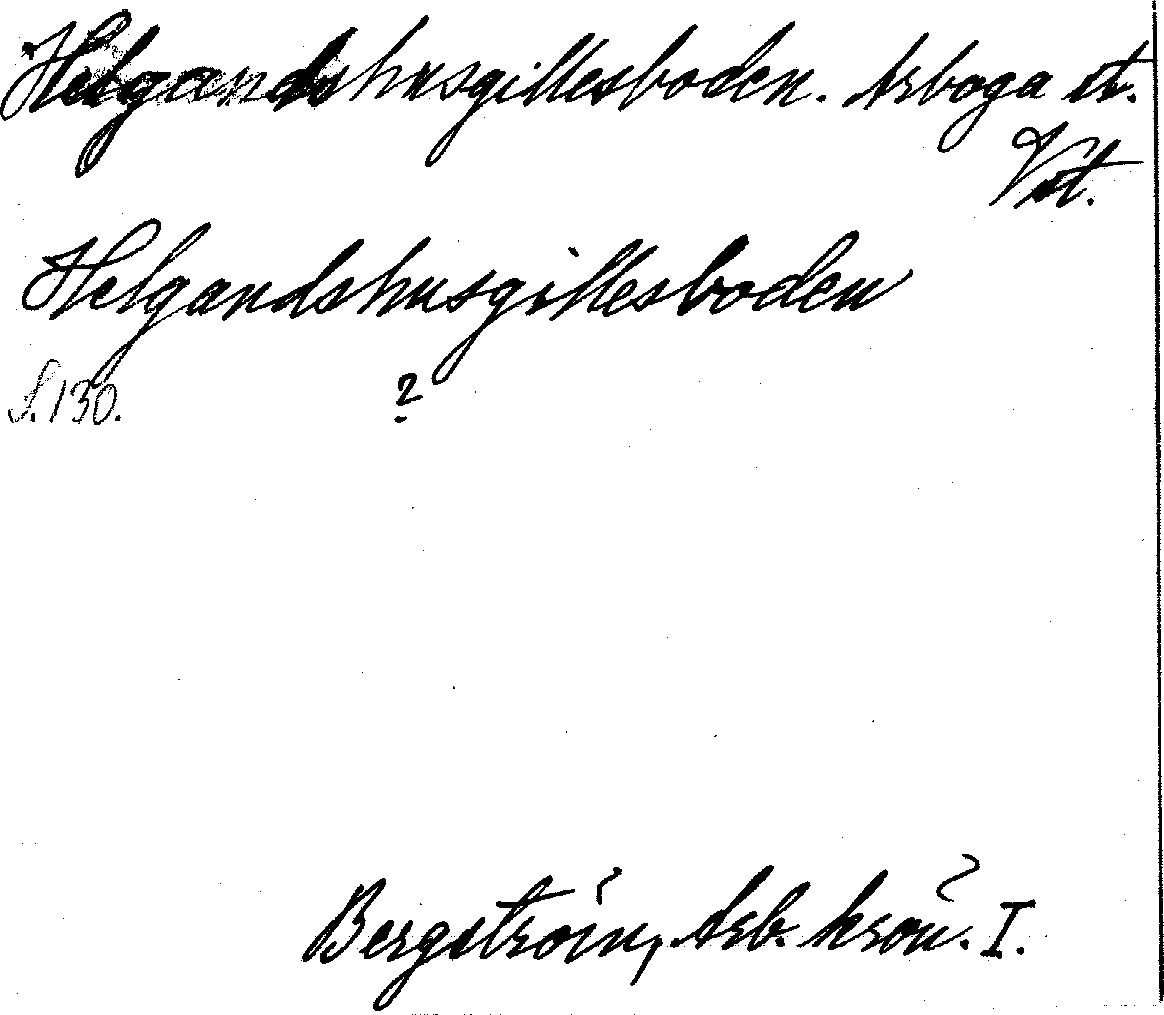 Helgandshusgillesboden. Arboga st.
Vst.
Helgandshusgillesboden
S. 130. ?
Bergström, Arb. krön. I.